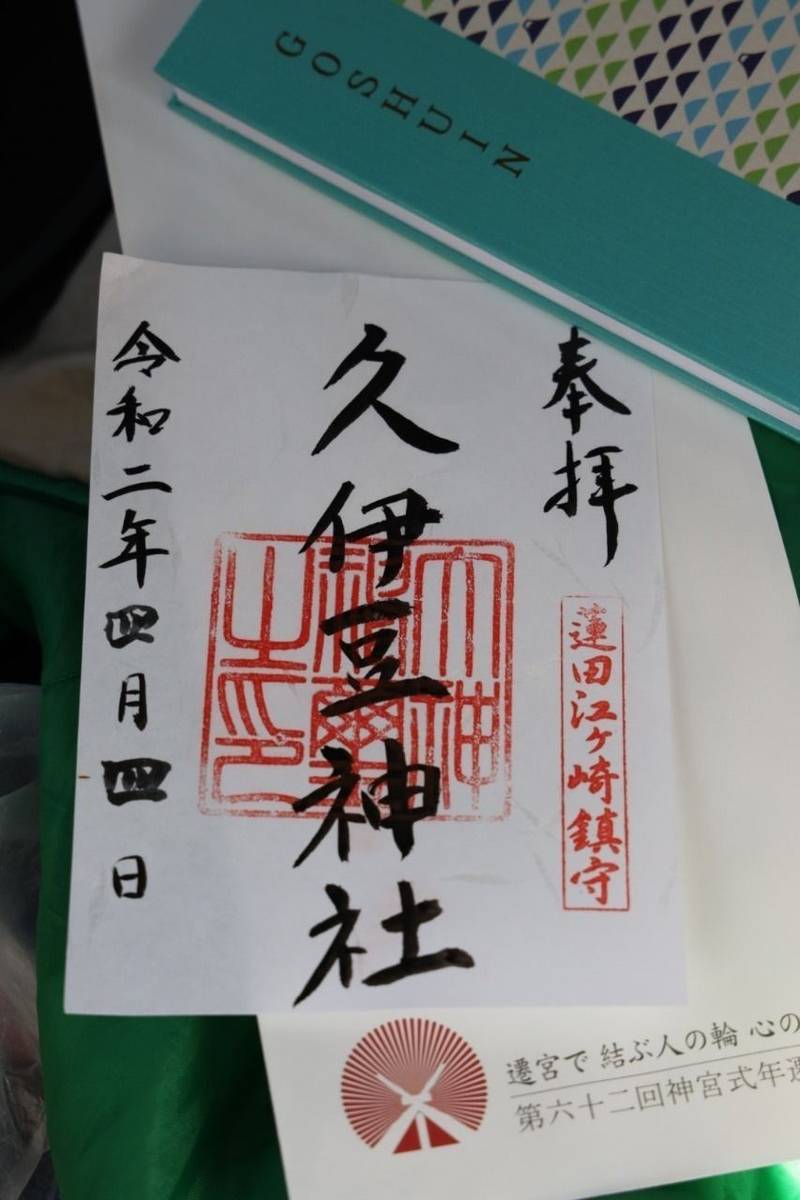 GOSHUIN
奉拝
蓮田江ヶ崎鎮守
久伊豆神社
令和二年四月四日
遷宮で 結ぶ人の輪 心の
第六十二回神宮式年遷